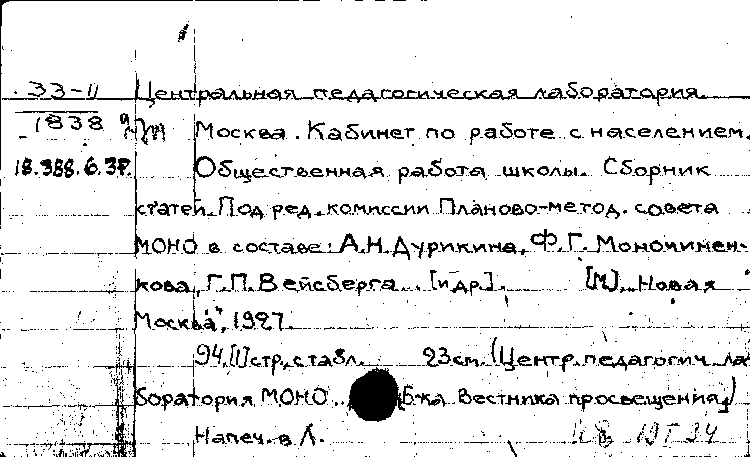 33-11 Центральная педагогическая лаборатория.
1838 Москва. Кабинет по работе с населением.
18.388.6.38. Общественная работа школы. Сборник
статей. Под ред. комиссии Планово-метод. совета
МОНО в составе: А.Н. Дурикина, Ф.Г. Мономинен-
кова, Г.П. Вейсберга.. [и др.]. [М], „Новая
Москва", 1927.
94,[1] стр, с табл. 23см. (Центр. педагогич. ла
боратория МОНО.. (Б-ка Вестника просвещения)
Напеч. в Л.